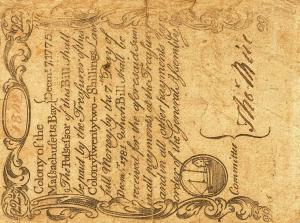 Colony of the
Massachusetts Bay Decemr. 7, 1775
The Possessor of this Bill shall
be paid by the Treasurer of this
Colony Twenty two Shillings Law-
full Money by the 7. Day of
Decmr. 1781 which Bill shall be
received for the aforesaid Sum
in all payments at the Treasu-
ry and in all other payments by
order of the General Assembly.
Committee